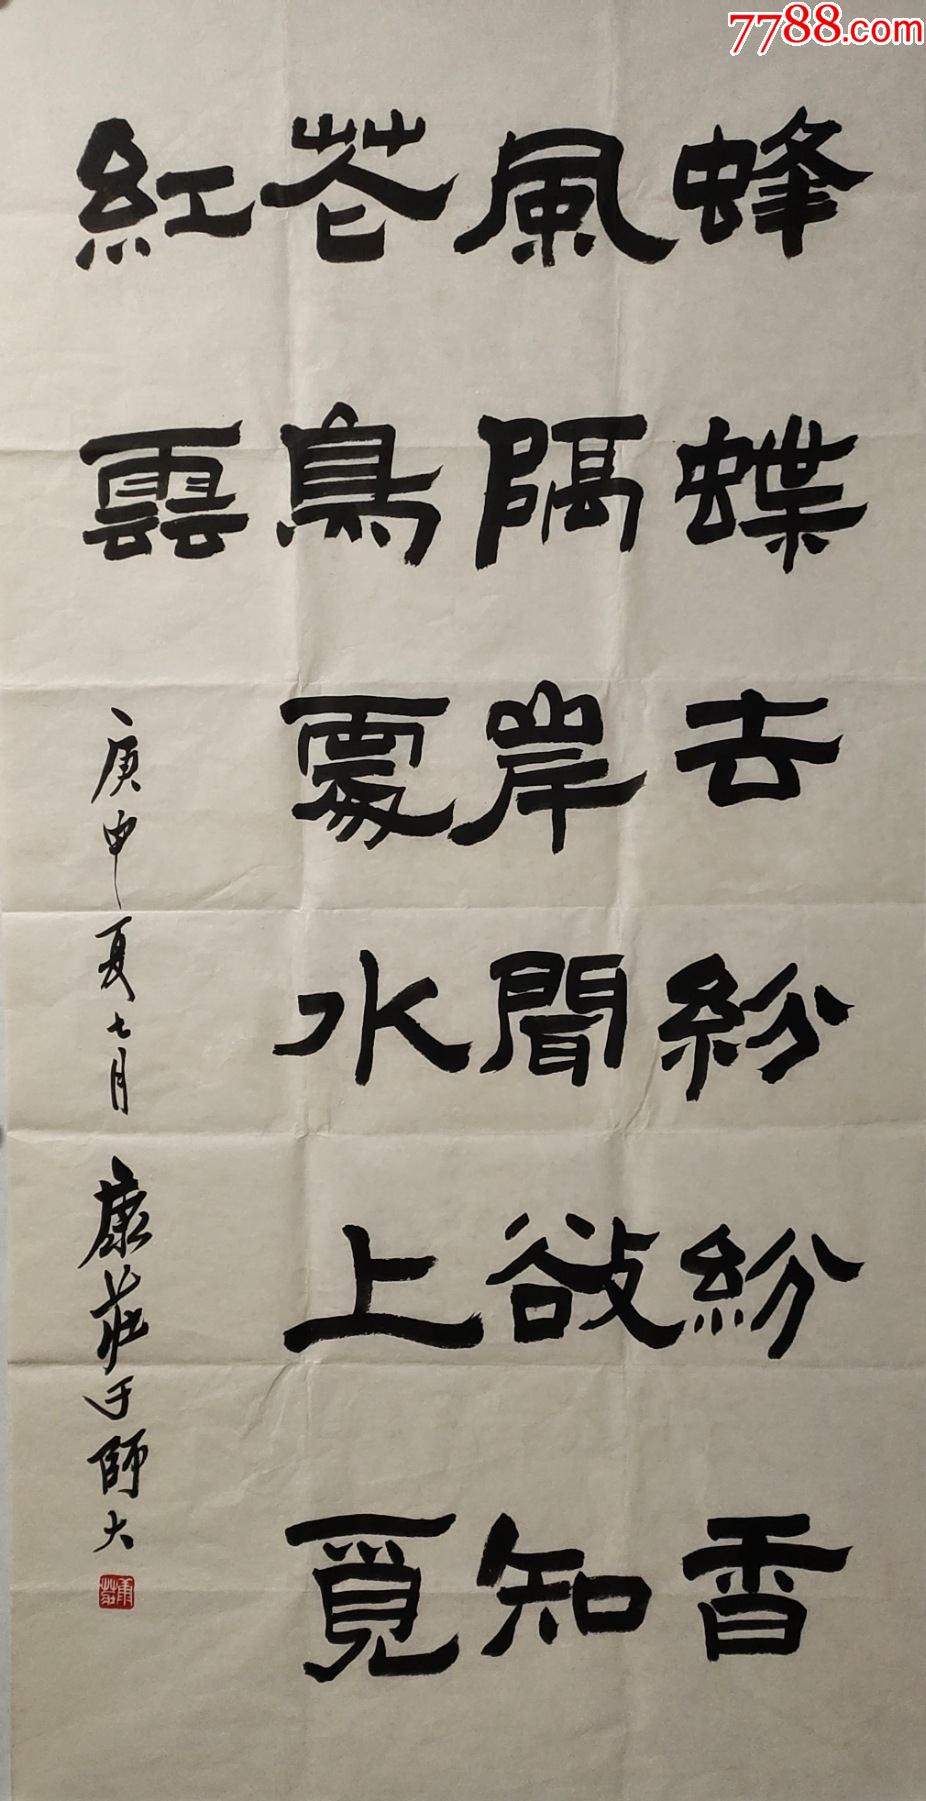 7788.com
蜂蝶去紛紛香
風隔岸聞欲知
花鳥處水上覓
紅雲
庚申夏七月 康莊于師大
康莊